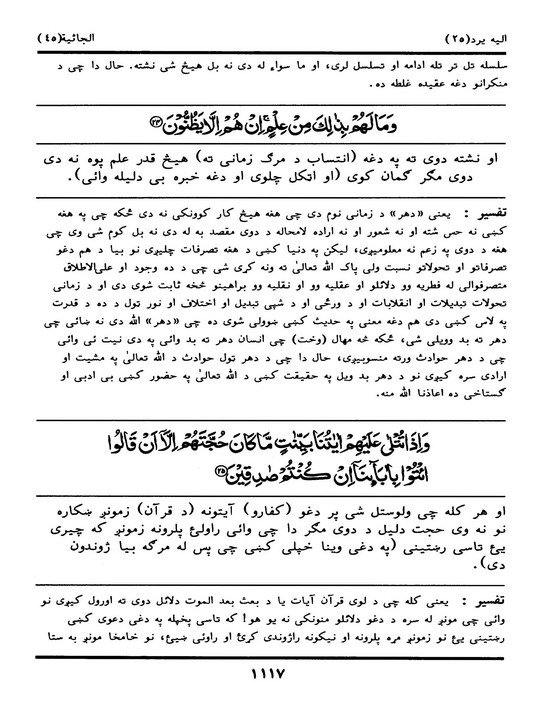 الیه یرد(۲۵) الجاثیة(٤٥)
سلسله تل تر تله ادامه او تسلسل لری، او ما سواء له دی نه بل هیڅ شی نشته. حال دا چی د
منکرانو دغه عقیده غلطه ده.
وَمَا لَهُمْ بِذٰلِكَ مِنْ عِلْمٍ ۚ اِنْ هُمْ اِلَّا یَظُنُّوْنَ ﴿۲۴﴾
او نشته دوی ته په دغه (انتساب د مرگ زمانی ته) هیڅ قدر علم پوه نه دی
دوی مگر گمان کوی (او اټکل چلوی او دغه خبره بی دلیله وائی).
تفسیر : یعنی «دهر» د زمانی نوم دی چی هغه هیڅ کار کوونکی نه دی ځکه چی په هغه
کښی نه حس شته او نه شعور او نه اراده لامحاله د دوی مقصد به له دی نه بل کوم شی وی چی
هغه د دوی په زعم نه معلومیږی، لیکن په دنیا کښی د هغه تصرفات چلیږی نو بیا د هم دغو
تصرفاتو او تحولاتو نسبت ولی پاک الله تعالیٰ ته ونه کړی شی چی د ده وجود او علی‌الاطلاق
متصرفوالی له فطریه وو دلائلو او عقلیه وو او نقلیه وو براهینو څخه ثابت شوی دی او د زمانی
تحولات تبدیلات او انقلابات او د ورځی او د شپی تبدیل او اختلاف او نور ټول د ده د قدرت
په لاس کښی دی هم دغه معنی په حدیث کښی ښوولی شوی ده چی «دهر» الله دی نه ښائی چی
دهر ته بد وویلی شی، ځکه څه مهال (وخت) چی انسان دهر ته بد وائی په دی نیت ئی وائی
چی د دهر حوادث ورته منسوبیږی، حال دا چی د دهر ټول حوادث د الله تعالیٰ په مشیت او
ارادی سره کیږی نو د دهر بد ویل په حقیقت کښی د الله تعالیٰ په حضور کښی بی ادبی او
گستاخی ده اعاذنا الله منه.
وَاِذَا تُتْلٰی عَلَیْهِمْ اٰیٰتُنَا بَیِّنٰتٍ مَّا كَانَ حُجَّتَهُمْ اِلَّاۤ اَنْ قَالُوا
ائْتُوْا بِاٰبَآئِنَاۤ اِنْ كُنْتُمْ صٰدِقِیْنَ ﴿۲۵﴾
او هر کله چی ولوستل شی پر دغو (کفارو) آیتونه (د قرآن) زمونږ ښکاره
نو نه وی حجت دلیل د دوی مگر دا چی وائی راولئ پلرونه زمونږ که چیری
یئ تاسی رښتینی (په دغی وینا خپلی کښی چی پس له مرگه بیا ژوندون
دی).
تفسیر : یعنی کله چی د لوی قرآن آیات یا د بعث بعد الموت دلائل دوی ته اورول کیږی نو
وائی چی مونږ له سره د دغو دلائلو منونکی نه یو هو! که تاسی پخپله په دغی دعوی کښی
رښتینی یئ نو زمونږ مړه پلرونه او نیکونه راژوندی کړئ او راوئی ښیئ، نو خامخا مونږ به ستا
۱۱۱۷